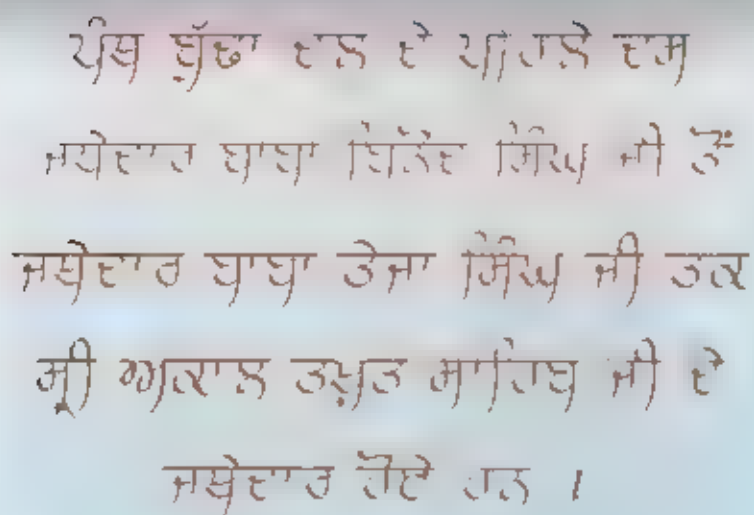 ਪੰਥ ਬੁੱਢਾ ਦਲ ਦੇ ਪਹਿਲੇ ਦਸ
ਜਥੇਦਾਰ ਬਾਬਾ ਬਿਨੋਦ ਸਿੰਘ ਜੀ ਤੋਂ
ਜਥੇਦਾਰ ਬਾਬਾ ਤੇਜਾ ਸਿੰਘ ਜੀ ਤਕ
ਸ੍ਰੀ ਅਕਾਲ ਤਖ਼ਤ ਸਾਹਿਬ ਜੀ ਦੇ
ਜਥੇਦਾਰ ਹੋਏ ਹਨ ।